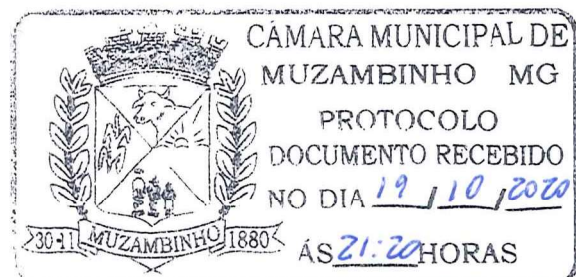 CÂMARA MUNICIPAL DE
MUZAMBINHO MG
PROTOCOLO
DOCUMENTO RECEBIDO
NO DIA 19 / 10 / 2020
ÁS 21:20 HORAS
30-11 MUZAMBINHO 1880